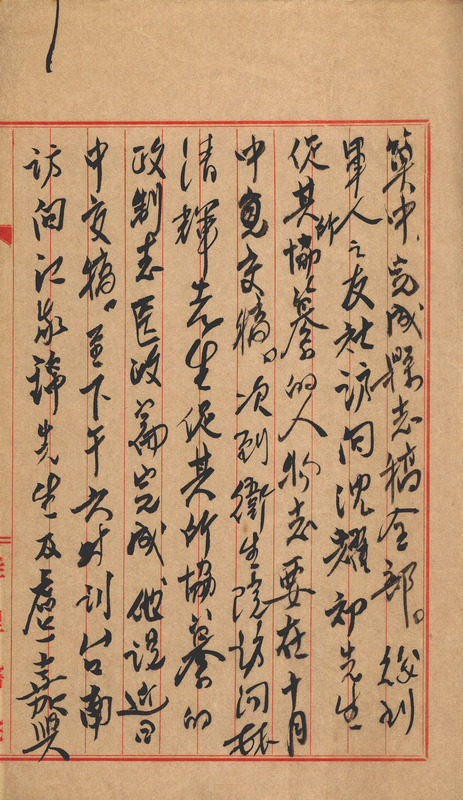 集中,完成縣志稿全部。後到
軍人之友社訪問沈耀初先生
促其所協纂的人物志要在十月
中旬交稿。次到衛生院訪問林
清輝先生促其所協纂的
政制志医政篇完成他說近日
中交稿。至下午六时到台南
訪问江家錦先生及盧嘉興